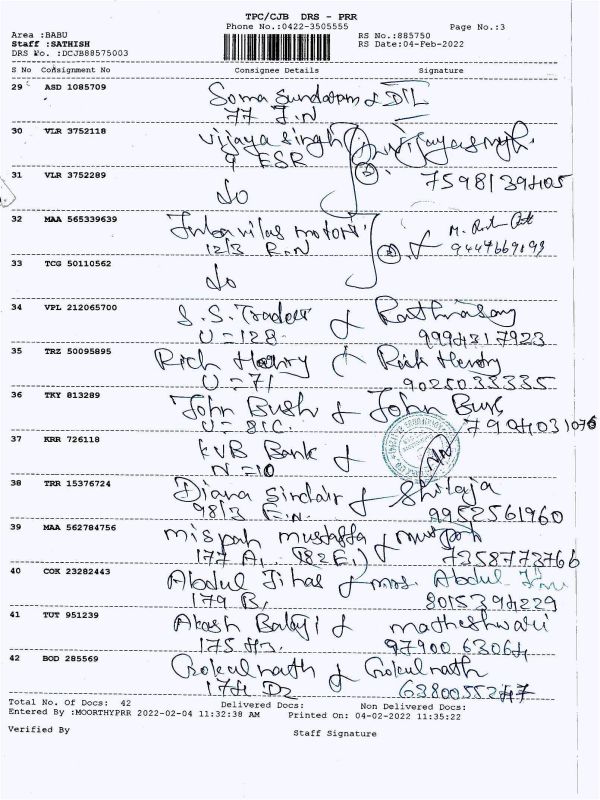 TPC/CJB DRS - PRR
Phone No.:0422-3505555 Page No.:3
Area :BABU RS No.:885750
Staff :SATHISH RS Date:04-Feb-2022
DRS No. :DCJB88575003
S No Consignment No Consignee Details Signature
29 ASD 1085709 Soma Sundaram & DIL
77 F.N
30 VLR 3752118 Vijaya Singh
9 ESR
31 VLR 3752289 7598139405
Do
32 MAA 565339639 motors
12/3 R.N 9444669199
33 TCG 50110562
Do
34 VPL 212065700 S.S. Traders &
U = 128 9994317923
35 TRZ 50095895 Rich Henry Rich Henry
U = 71 9025033335
36 TKY 813289 John Bush & John Bush
U = 81C. 7904031076
37 KRR 726118 KVB Bank &
N = 10
38 TRR 15376724 Diana Sinclair & Shilaja
98/3 F.N. 9952561960
39 MAA 562784756 mispah mustaffa &
177 A, (182 E,) 7358773766
40 COK 23282443 Abdul Jihas & mrs. Abdul
179 B, 8015394229
41 TUT 951239 Akash Balaji & matheshwari
175 97900 63064
42 BOD 285569 Gokulnath & Gokulnath
174 D2 6380055247
Total No. Of Docs: 42 Delivered Docs: Non Delivered Docs:
Entered By :MOORTHYPRR 2022-02-04 11:32:38 AM Printed On: 04-02-2022 11:35:22
Verified By Staff Signature